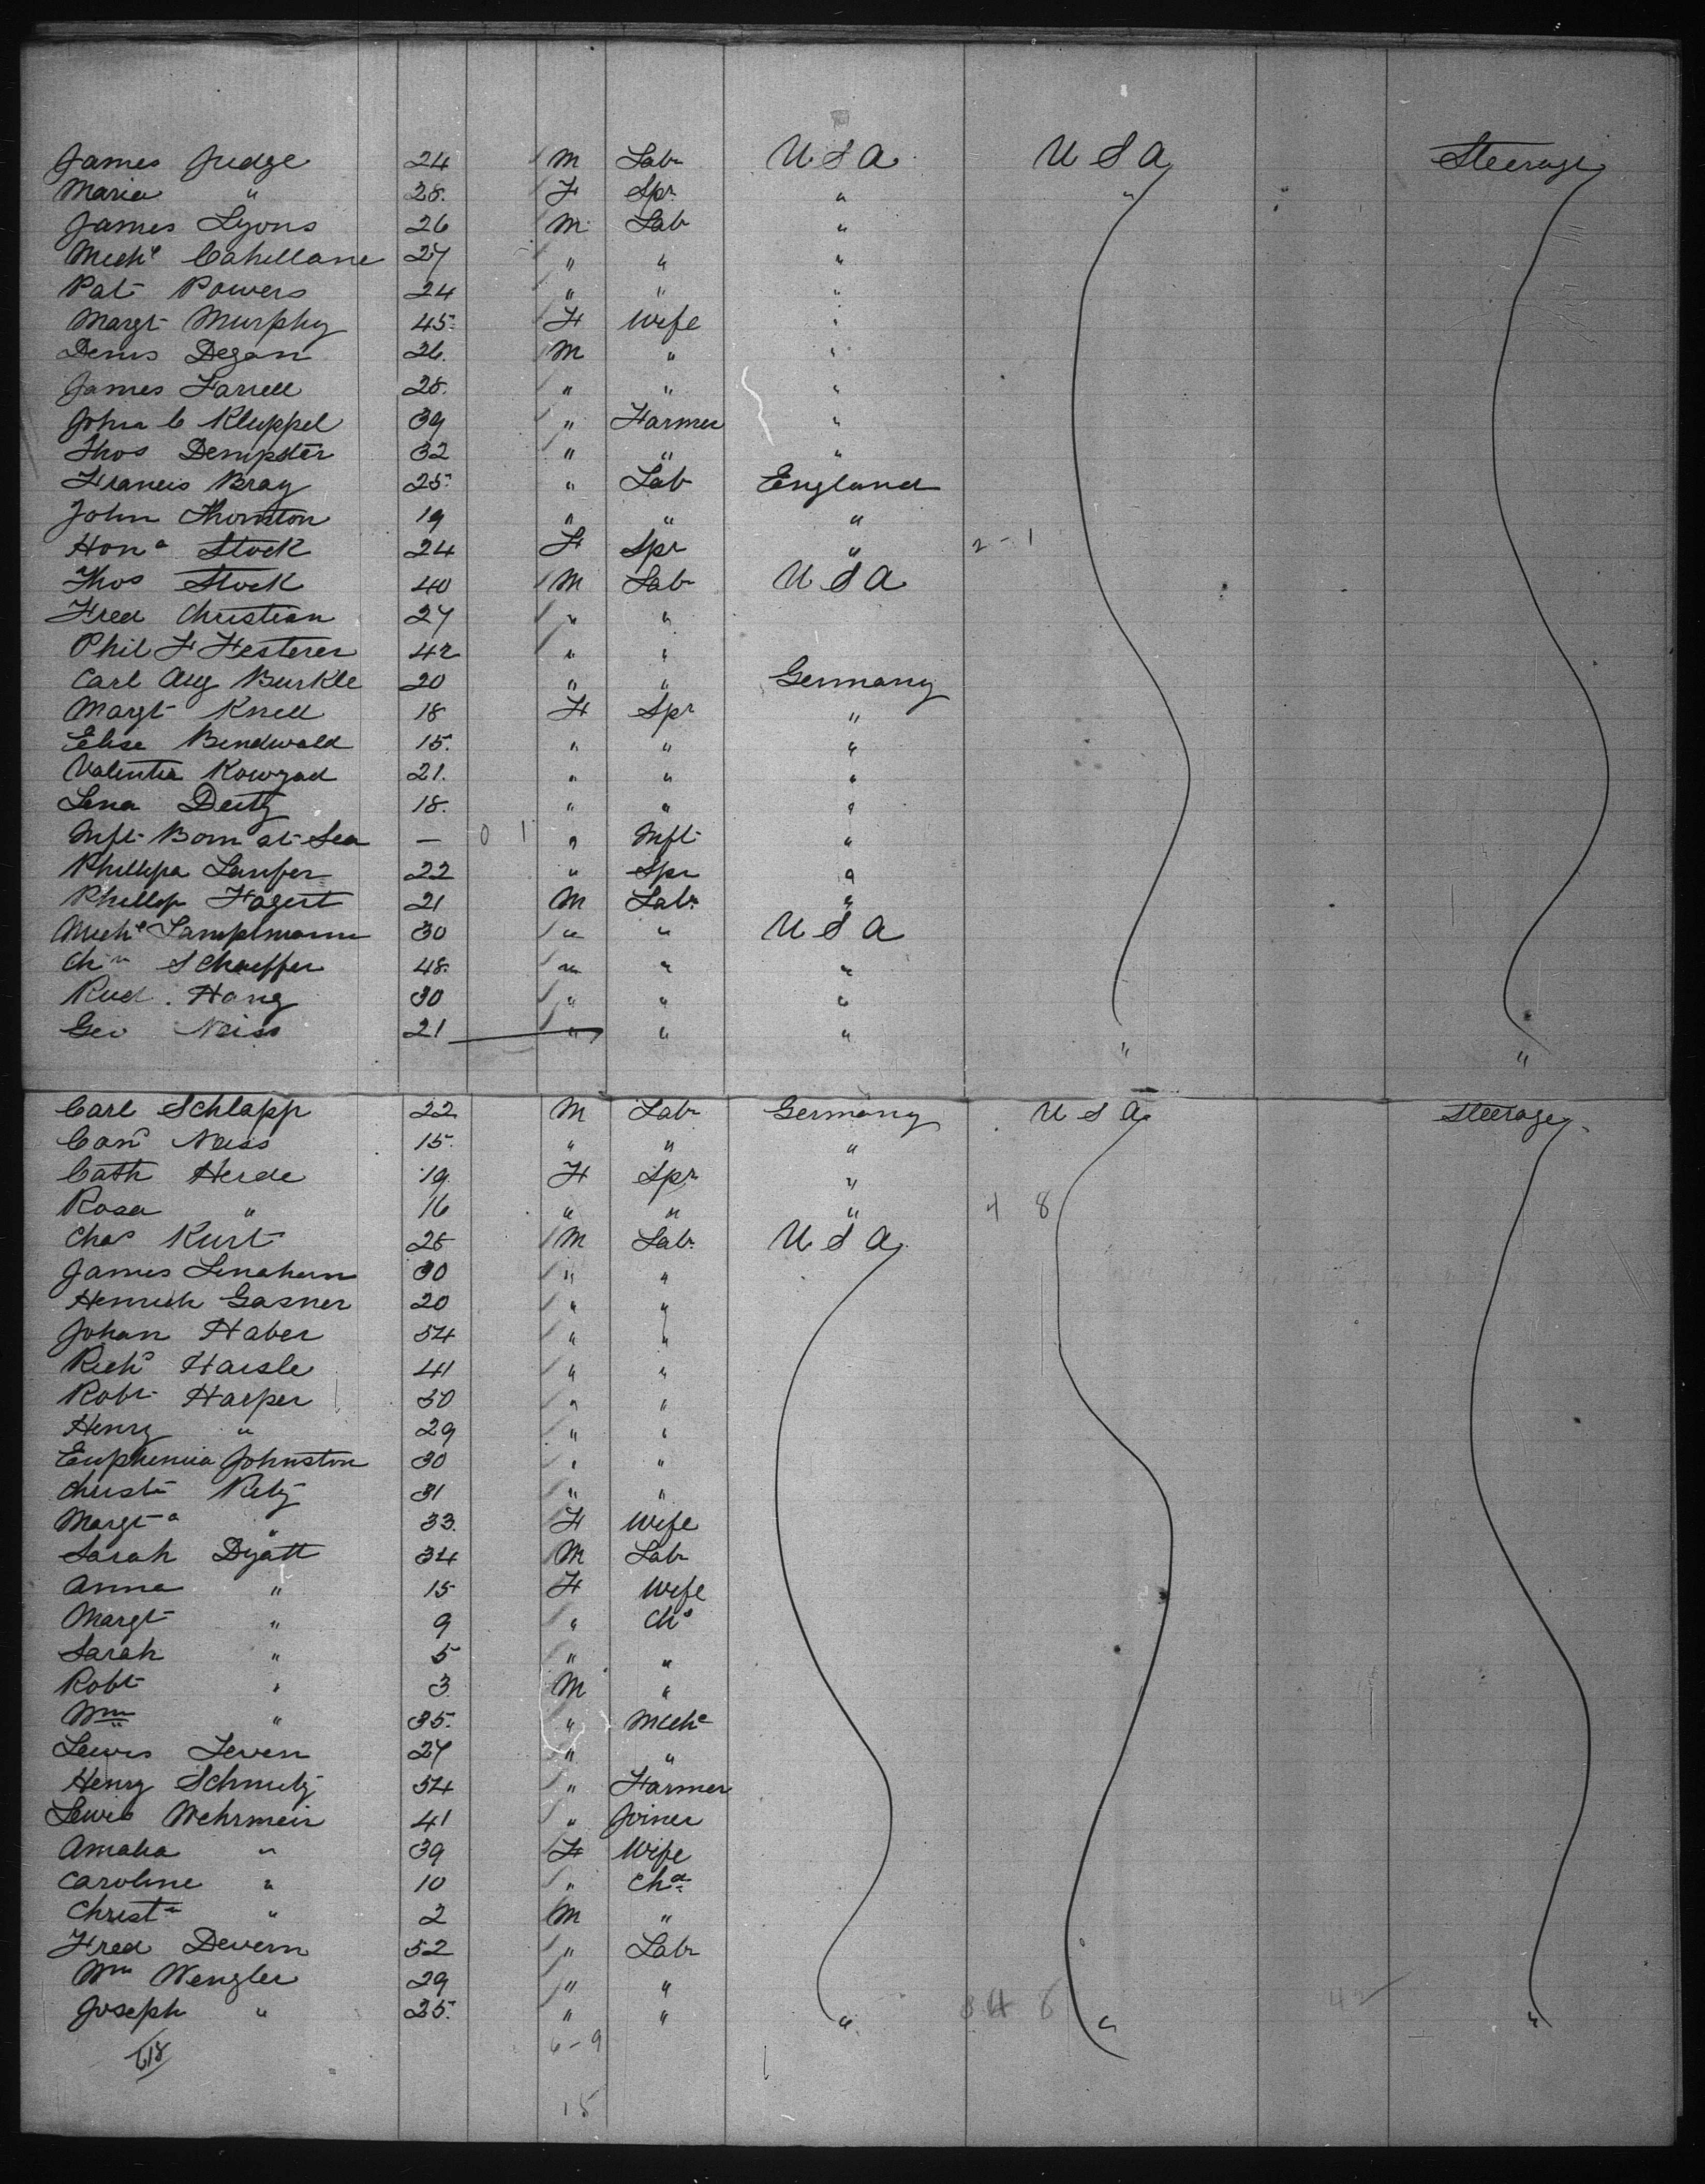 James Judge 24 M Lab U S A U S A Steerage
Maria " 28. F Spr " "
James Lyons 26 M Lab "
Michl Cahillane 27 " " "
Pat Powers 24 " " "
Margt Murphy 45. F Wife "
Denis Degan 26. M " "
James Farrell 28. " " "
John C Kluppel 39 " Farmer "
Thos Dempster 32 " " "
Francis Bray 25. " Lab England
John Thornton 19 " " "
Hona Stock 24 F Spr " 2 - 1
Thos Stock 40 M Lab U S A
Fred Christian 27 " "
Phil F Festerer 42 " "
Carl Aug Burkle 20 " " Germany
Margt Knell 18 F Spr "
Elise Bendwald 15. " " "
Valentia Kowzad 21. " " "
Lena Deitz 18. " " "
Inft Born at Sea — 0 1 " Inft "
Phillipa Laufer 22 " Spr "
Phillip Fagert 21 M Lab "
Michl Lamplmann 30 " " U S A
Chn Schaeffer 48. " " "
Rud. Hang 30 " " "
Geo Neiss 21 " " " " "
Carl Schlapp 22 M Lab Germany U S A Steerage
Cond Neiss 15. " " "
Cath Herde 19. F Spr "
Rosa " 16 " " " 4 8
Chas Kurt 28 M Lab U S A
James Lenahan 30 " "
Henrich Gasner 20 " "
Johan Haber 54 " "
Richd Haisle 41 " "
Robt Harper 30 " "
Henry " 29 " "
Euphemia Johnston 30 " "
Christn Retz 31 " "
Margta " 33. F Wife
Sarah Dyatt 34 M Lab
Anna " 15 F Wife
Margt " 9 " Chd
Sarah " 5 " "
Robt " 3 M "
Wm " 35. " Mechc
Lewis Leven 27 " "
Henry Schmitz 54 " Farmer
Lewis Wehrmeir 41 " Joiner
Amalia " 39 F Wife
Caroline " 10 " Chd
Christn " 2 M "
Fred Devern 52 " Lab
Wm Wengler 29 " "
Joseph " 25. " " " "  "
618 6 - 9
15